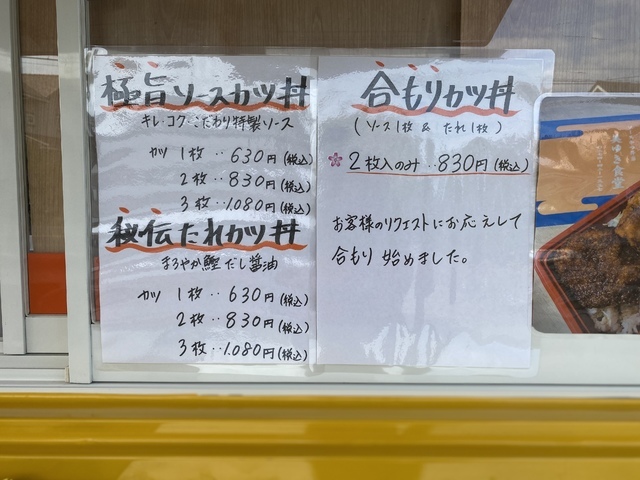 極旨ソースカツ丼
キレ・コク・こだわり特製ソース
カツ 1枚‥630円(税込)
2枚‥830円(税込)
3枚‥1,080円(税込)
秘伝たれカツ丼
まろやか鰹だし醤油
カツ 1枚‥630円(税込)
2枚‥830円(税込)
3枚‥1,080円(税込)
合もりカツ丼
(ソース1枚 & たれ1枚)
2枚入のみ‥830円(税込)
お客様のリクエストにお応えして
合もり 始めました。